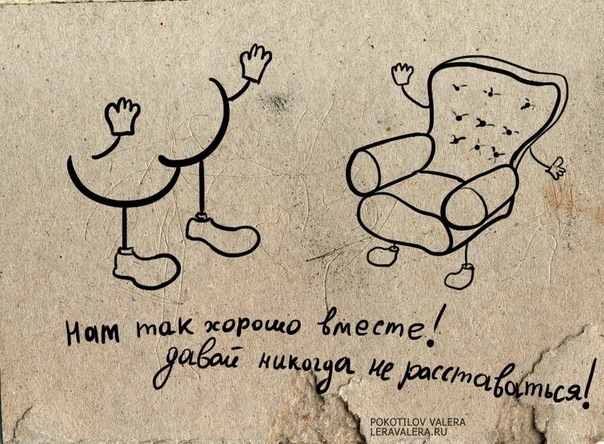 Нам так хорошо вместе!
давай никогда не расставаться!
POKOTILOV VALERA
LERAVALERA.RU